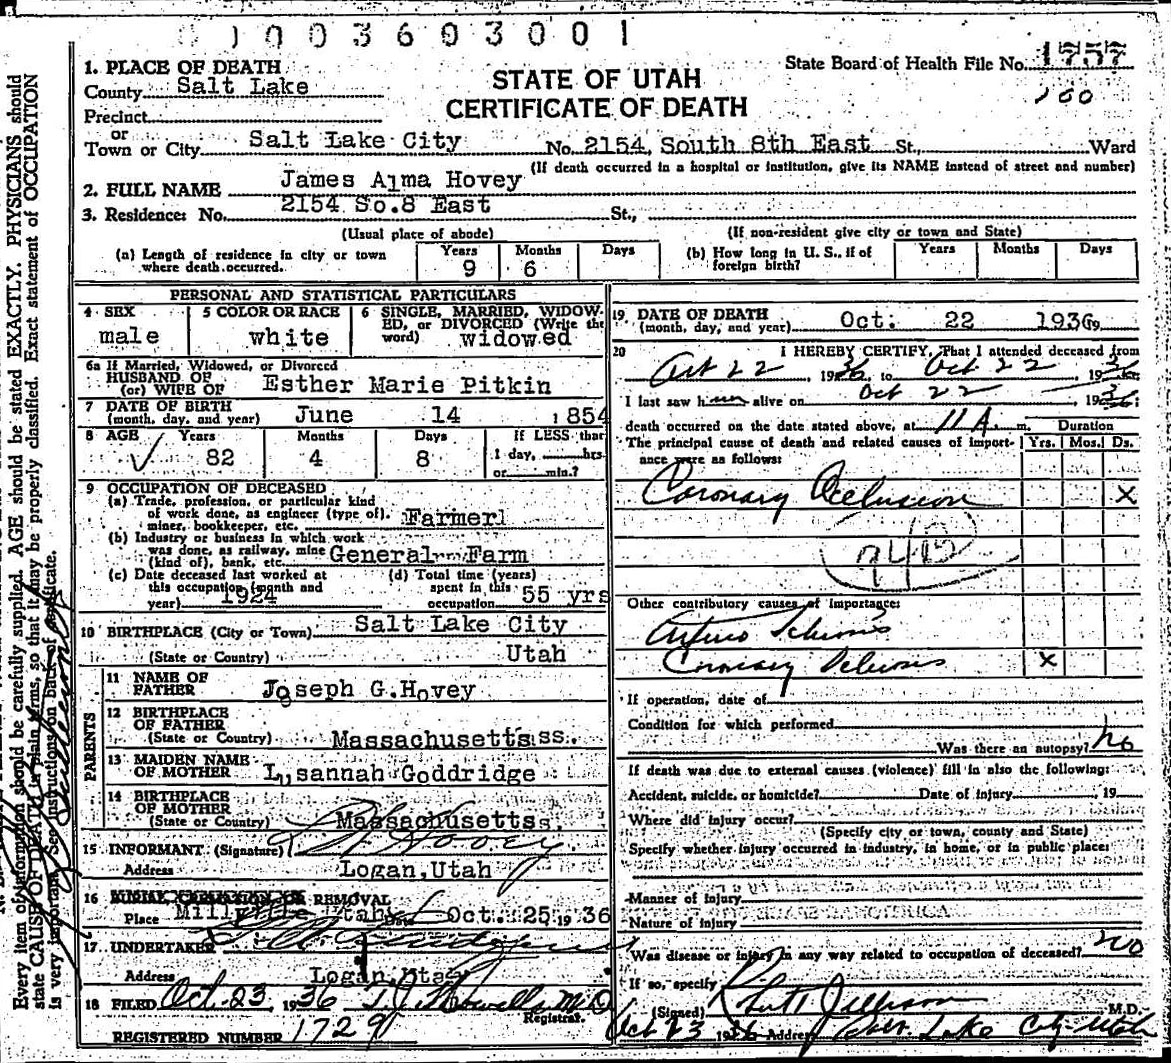 1003603001
1. PLACE OF DEATH
State Board of Health File No. 1757
County Salt Lake
STATE OF UTAH
100
Precinct
CERTIFICATE OF DEATH
or
Town or City Salt Lake City No. 2154 South 8th East St. Ward
(If death occurred in a hospital or institution, give its NAME instead of street and number)
2. FULL NAME James Alma Hovey
3. Residence: No. 2154 So.8 East St.,
(Usual place of abode) (If non-resident give city or town and State)
(a) Length of residence in city or town where death occurred. Years 9 Months 6 Days
(b) How long in U. S., if of foreign birth? Years Months Days
PERSONAL AND STATISTICAL PARTICULARS
4 SEX male
5 COLOR OR RACE white
6 SINGLE, MARRIED, WIDOWED, or DIVORCED (Write the word) widowed
6a If Married, Widowed, or Divorced
HUSBAND OF
(or) WIFE OF Esther Marie Pitkin
7 DATE OF BIRTH
(month, day, and year) June 14 1854
8 AGE Years 82 Months 4 Days 8
If LESS than
1 day, hrs.
or min.?
9 OCCUPATION OF DECEASED
(a) Trade, profession, or particular kind
of work done, as engineer (type of),
miner, bookkeeper, etc. Farmer
(b) Industry or business in which work
was done, as railway, mine
(kind of), bank, etc. General Farm
(c) Date deceased last worked at
this occupation (month and
year) 1924
(d) Total time (years)
spent in this
occupation 55 yrs
10 BIRTHPLACE (City or Town) Salt Lake City
(State or Country) Utah
PARENTS
11 NAME OF
FATHER Joseph G.Hovey
12 BIRTHPLACE
OF FATHER
(State or Country) Massachusetts ss.
13 MAIDEN NAME
OF MOTHER Lusannah Goddridge
14 BIRTHPLACE
OF MOTHER
(State or Country) Massachusetts s.
15 INFORMANT (Signature) Hovey
Address Logan, Utah
16 BURIAL, CREMATION, OR REMOVAL
Place Millville Utah Oct. 25, 1936
17. UNDERTAKER
Address Logan, Utah
18 FILED Oct. 23, 1936
Registrar.
REGISTERED NUMBER 1729
19 DATE OF DEATH
(month, day, and year) Oct. 22 1936
20 I HEREBY CERTIFY, That I attended deceased from
Oct 22, 1936, to Oct 22, 1936
I last saw him alive on Oct 22 1936
death occurred on the date stated above, at 11 A. m.
Duration
The principal cause of death and related causes of importance were as follows:
Yrs. Mos. Ds.
Coronary Occlusion x
Other contributory causes of importance:
Coronary x
If operation, date of
Condition for which performed
Was there an autopsy? no
If death was due to external causes (violence) fill in also the following:
Accident, suicide, or homicide? Date of injury , 19
Where did injury occur?
(Specify city or town, county and State)
Specify whether injury occurred in industry, in home, or in public place:
Manner of injury
Nature of injury
Was disease or injury in any way related to occupation of deceased? no
If so, specify
(Signed) M.D.
Oct 23 1936 Address Salt Lake City Utah
Every item of information should be carefully supplied. AGE should be stated EXACTLY. PHYSICIANS should
state CAUSE OF DEATH in plain terms, so that it may be properly classified. Exact statement of OCCUPATION
is very important. See instructions on back of certificate.